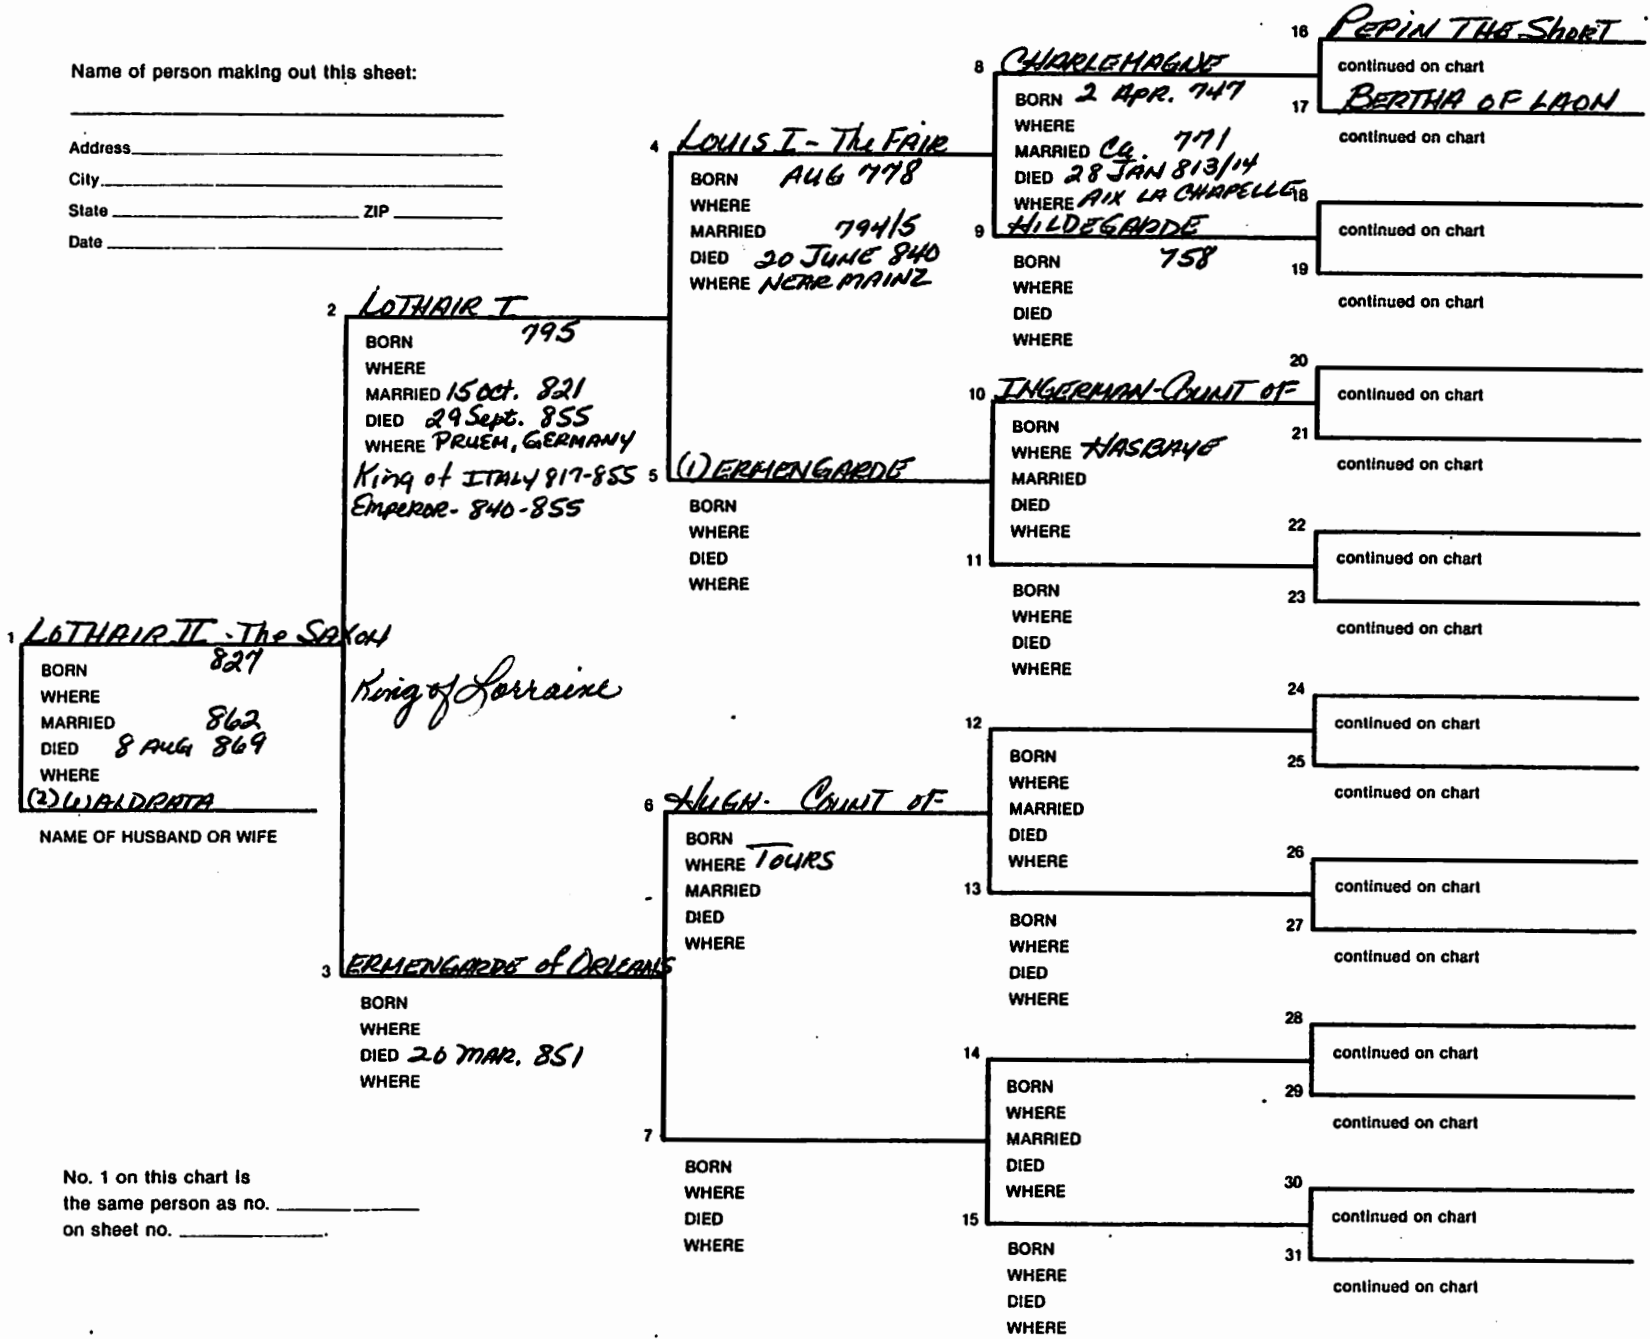 Name of person making out this sheet:
Address
City
State ZIP
Date
1 LOTHAIR II - The SAXON
BORN 827
WHERE
MARRIED 862
DIED 8 AUG 869
WHERE
(2) WALDRATA
NAME OF HUSBAND OR WIFE
King of Lorraine
No. 1 on this chart is
the same person as no.
on sheet no. .
2 LOTHAIR I
BORN 795
WHERE
MARRIED 15 Oct. 821
DIED 29 Sept. 855
WHERE PRUEM, GERMANY
King of ITALY 817-855
EMPEROR - 840-855
3 ERMENGARDE of ORLEANS
BORN
WHERE
DIED 20 MAR. 851
WHERE
4 LOUIS I - The FAIR
BORN AUG 778
WHERE
MARRIED 794/5
DIED 20 JUNE 840
WHERE NEAR MAINZ
5 (1) ERMENGARDE
BORN
WHERE
DIED
WHERE
6 HUGH - COUNT OF
BORN
WHERE TOURS
MARRIED
DIED
WHERE
7
BORN
WHERE
DIED
WHERE
8 CHARLEMAGNE
BORN 2 APR. 747
WHERE
MARRIED Ca. 771
DIED 28 JAN 813/14
WHERE AIX LA CHAPELLE
9 HILDEGARDE
BORN 758
WHERE
DIED
WHERE
10 INGERMAN - COUNT OF
BORN
WHERE HASBAYE
MARRIED
DIED
WHERE
11
BORN
WHERE
DIED
WHERE
12
BORN
WHERE
MARRIED
DIED
WHERE
13
BORN
WHERE
DIED
WHERE
14
BORN
WHERE
MARRIED
DIED
WHERE
15
BORN
WHERE
DIED
WHERE
16 PEPIN THE SHORT
continued on chart
17 BERTHA OF LAON
continued on chart
18
continued on chart
19
continued on chart
20
continued on chart
21
continued on chart
22
continued on chart
23
continued on chart
24
continued on chart
25
continued on chart
26
continued on chart
27
continued on chart
28
continued on chart
29
continued on chart
30
continued on chart
31
continued on chart